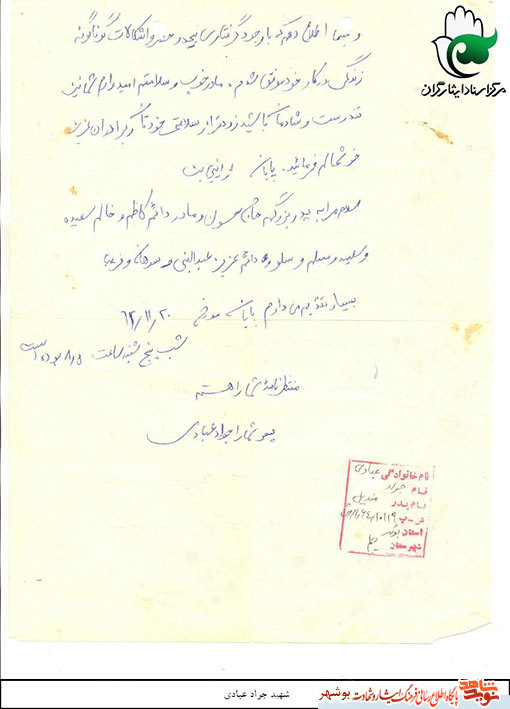 مرکز اسناد ایثارگران
و شما اطلاع دهم که با وجود گرفتاری و اشکالات گوناگون
زندگی در کار خود موفق شدم. مادر خوب و سلامتم امیدوارم شما نیز
تندرست و شادمان باشید زودتر از سلامتی خود تا و برادران عزیز
خوشحالم فرمائید. پایان
سلام مرا به پدر بزرگم و مادر دائم کاظم و خالم سعیده
و سلیمه و سلم و سلو و دائم عزیز عبدالنبی و
بسیار تقدیم می دارم پایان مورخ ۶۲/۱۱/۲۰
شب پنج شنبه ساعت ۸/۵ بوده است
منتظر نامه شما هستم
پسر شما جواد عبادی
نام خانوادگی عبادی
نام جواد
نام پدر
استان بوشهر
شهرستان دیلم
شهید جواد عبادی
نوید شاهد پایگاه اطلاع رسانی فرهنگ ایثار و شهادت بوشهر